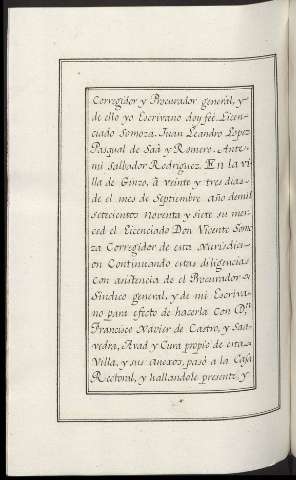 Corregidor y Procurador general, y
de ello yo Escrivano doy feé. Licen-
ciado Somoza. Juan Leandro Lopez
Pasqual de Saá y Romero. Ante-
mi Salbador Rodriguez. En la vi
lla de Ginzo, á veinte y tres dias
de el mes de Septiembre año de mil
setecientos noventa y siete su mer-
ced el Licenciado Don Vicente Somo
za Corregidor de esta Jurisdic-
ion Continuando estas diligencias
con asistencia de el Procurador
Sindico general, y de mi Escriva-
no para efecto de hacerla Con Dn
Francisco Xavier de Castro, y Saa-
vedra, Avad y Cura propio de esta
Villa, y sus anexos, pasó a la Casa
Rectoral, y hallandole presente, y